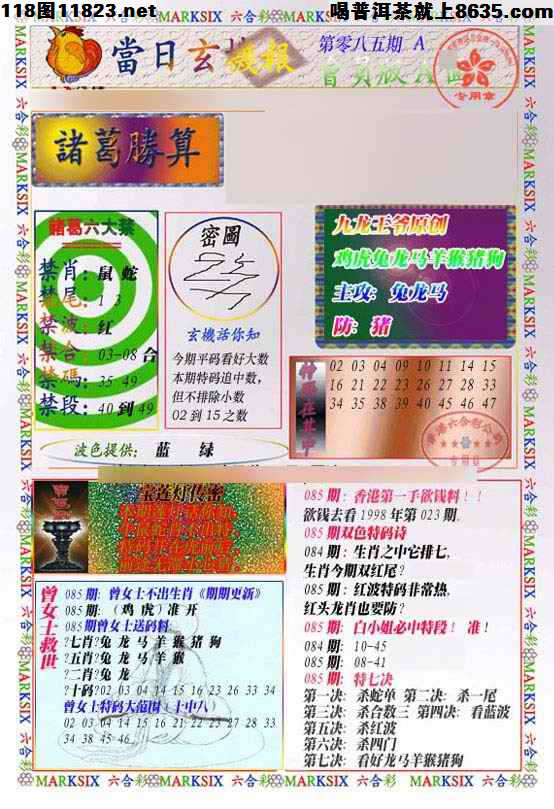 118图11823.net
喝普洱茶就上8635.com
MARKSIX 六合彩 MARKSIX 六合彩 MARKSIX 六合彩 MARKSIX 六合彩 MARKSIX 六合彩
當日玄機報
第零八五期 A
專用章
諸葛勝算
諸葛六大禁
禁肖: 鼠 蛇
禁尾: 1 3
禁波: 红
禁合: 03-08 合
禁碼: 35 49
禁段: 40 到 49
密圖
玄機話你知
今期平码看好大数
本期特码追中数,
但不排除小数
02 到 15 之数
九龙王爷原创
鸡虎兔龙马羊猴猪狗
主攻: 兔龙马
防: 猪
02 03 04 09 10 11 14 15
16 21 22 23 26 27 28 33
34 35 38 39 40 45 46 47
波色提供: 蓝 绿
宝莲灯传密
曾女士救世
085 期: 曾女士不出生肖《期期更新》
085 期: (鸡 虎) 准 开
085 期曾女士送码料:
?七肖?兔 龙 马 羊 猴 猪 狗
?五肖?兔 龙 马 羊 猴
?二肖?兔 龙
?十码?02 03 04 14 15 16 23 26 33 34
曾女士特码大范围 (十中八)
02 03 04 14 15 16 21 22 23 27 28 33
34 38 45 46
085 期: 香港第一手欲钱料!!
欲钱去看 1998 年第 023 期.
085 期双色特码诗
084 期: 生肖之中它排七.
生肖今期双红尾?
085 期: 红波特码非常热.
红头龙肖也要防?
085 期: 白小姐必中特段! 准!
084 期: 10-45
085 期: 08-41
085 期: 特七决
第一决: 杀蛇单 第二决: 杀一尾
第三决: 杀合数三 第四决: 看蓝波
第五决: 杀红波
第六决: 杀四门
第七决: 看好龙马羊猴猪狗
MARKSIX 六合彩 MARKSIX 六合彩 MARKSIX 六合彩 MARKSIX 六合彩 MARKSIX 六合彩